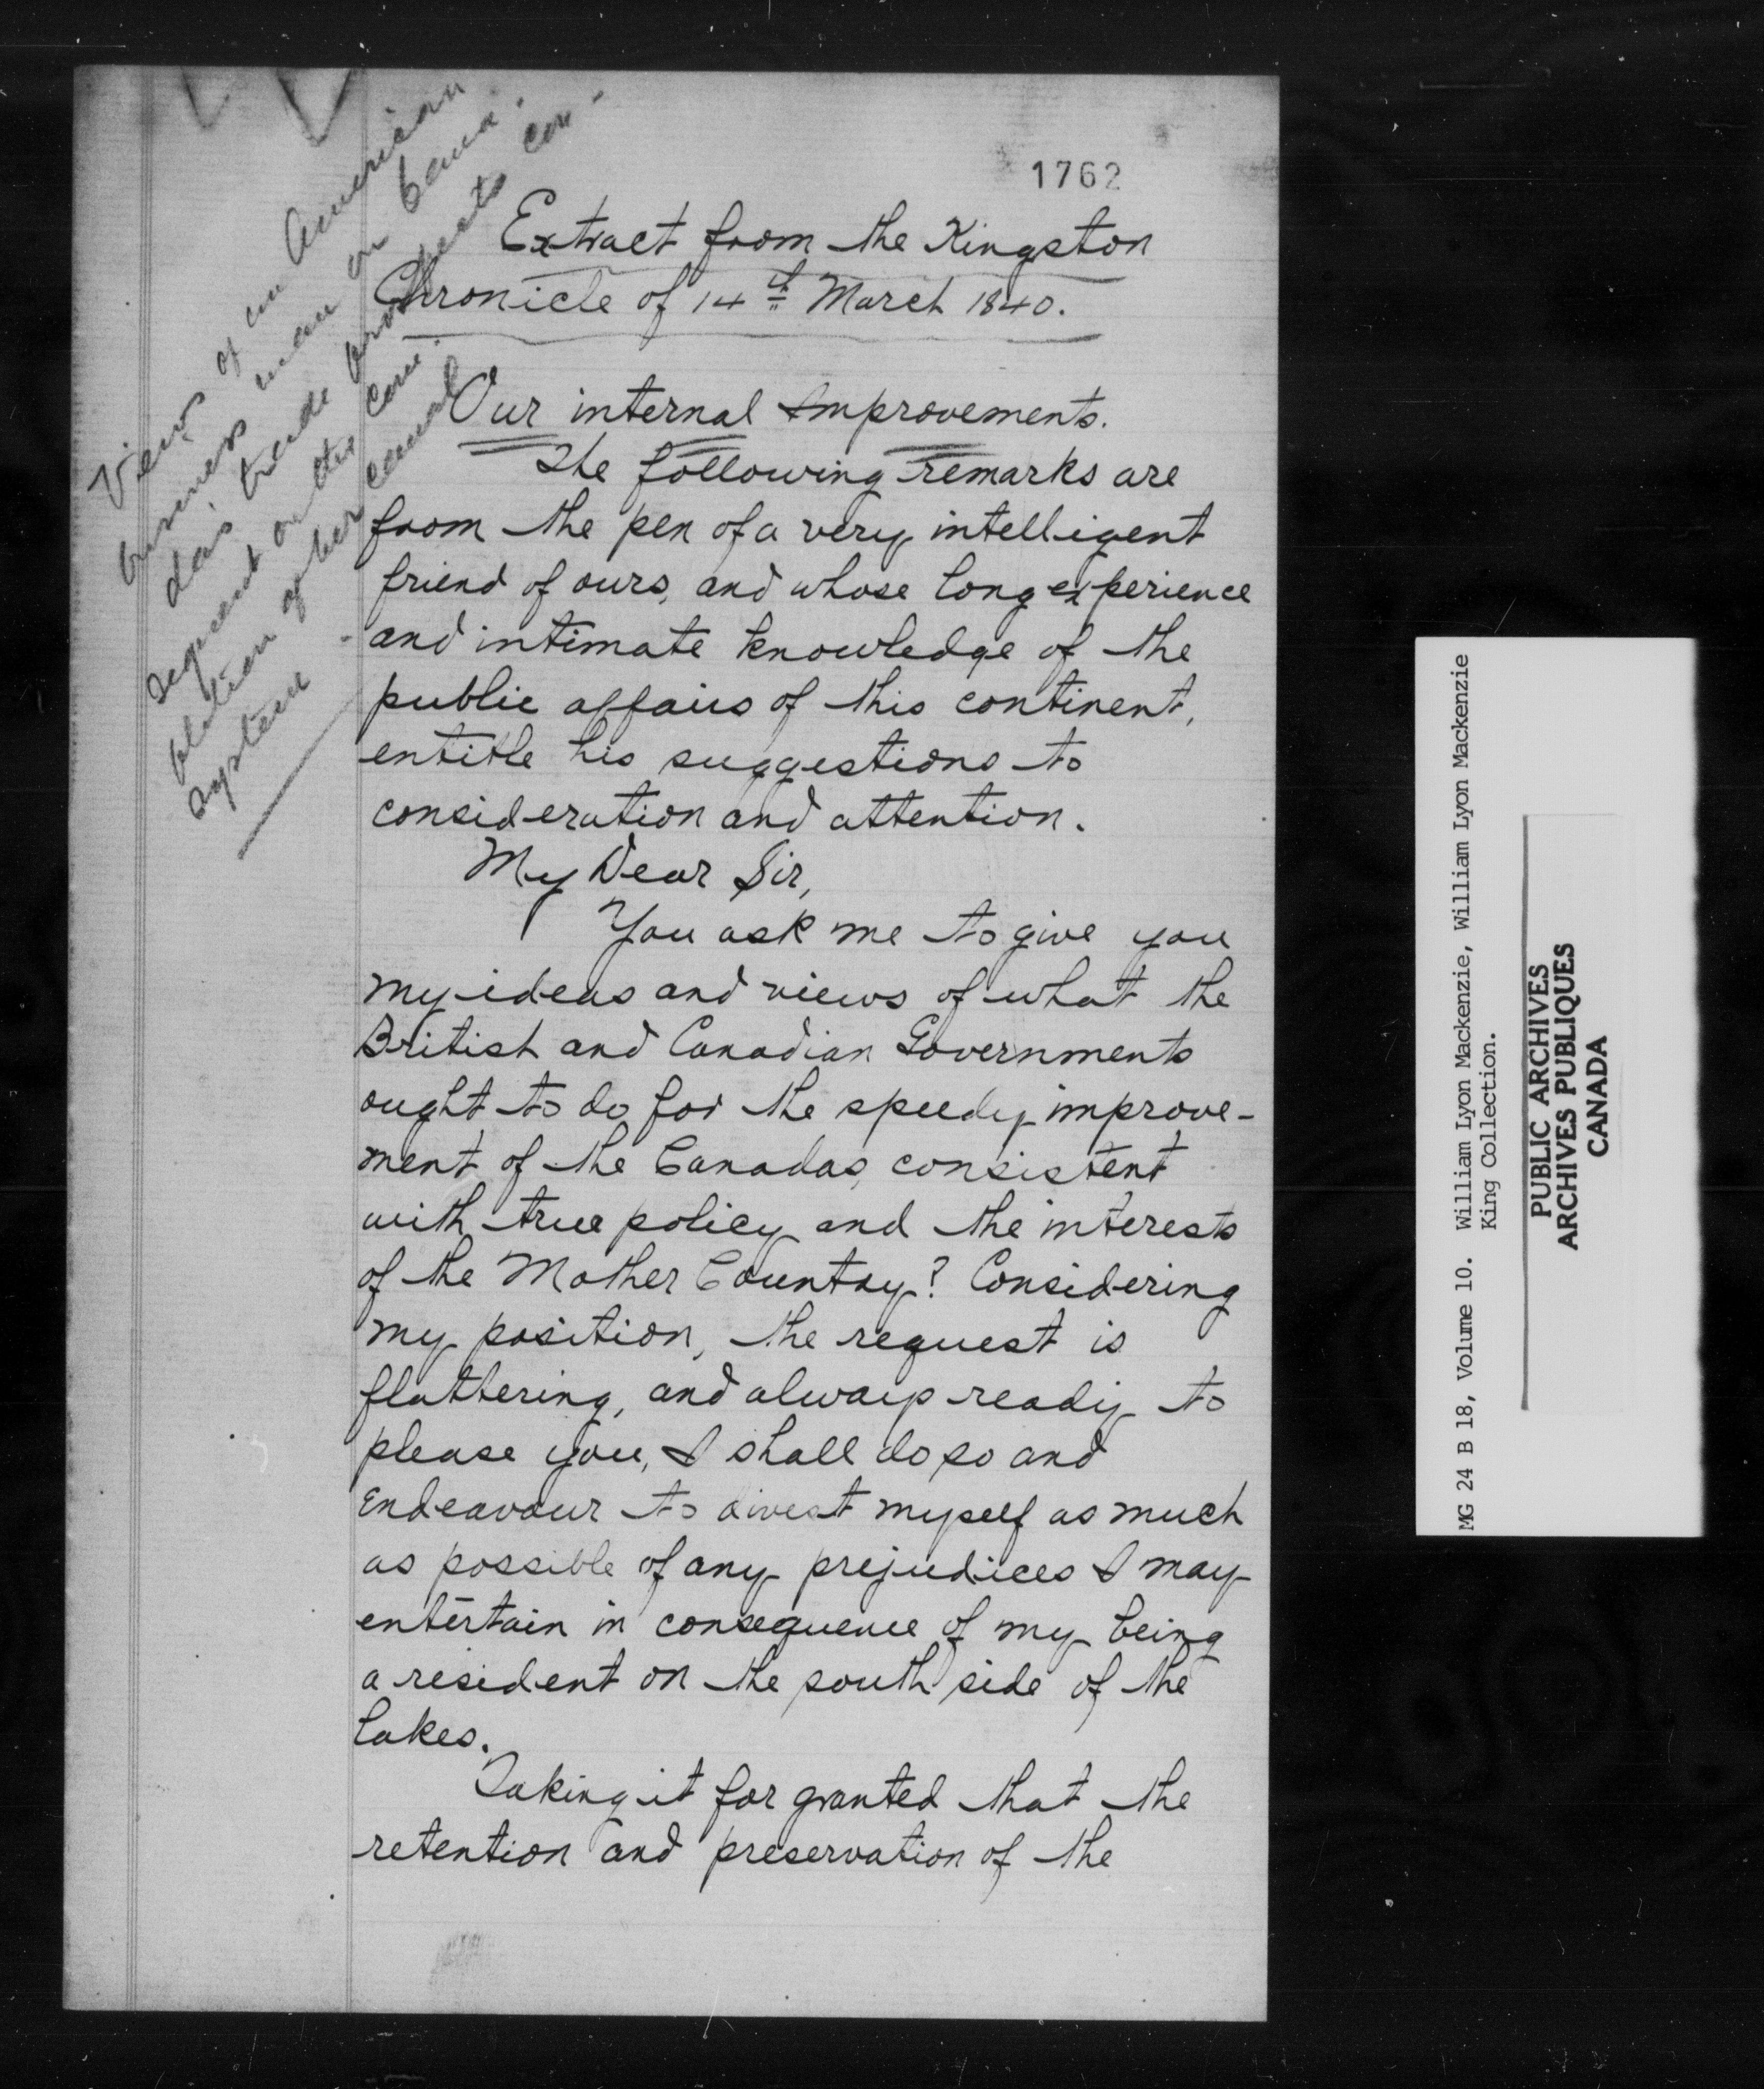 1762
Views of an American
business man on Cana-
da's trade prospects con-
sequent on the com-
pletion of her canal
system
Extract from the Kingston
Chronicle of 14th March 1840.
Our internal Improvements.
The following remarks are
from the pen of a very intelligent
friend of ours, and whose long experience
and intimate knowledge of the
public affairs of this continent,
entitle his suggestions to
consideration and attention.
My Dear Sir,
You ask me to give you
my ideas and views of what the
British and Canadian Governments
ought to do for the speedy improve-
ment of the Canadas, consistent
with true policy and the interests
of the Mother Country? Considering
my position, the request is
flattering, and always ready to
please you, I shall do so and
Endeavour to divest myself as much
as possible of any prejudices I may
entertain in consequence of my being
a resident on the south side of the
Lakes.
Taking it for granted that the
retention and preservation of the
MG 24 B 18, Volume 10. William Lyon Mackenzie, William Lyon Mackenzie
King Collection.
PUBLIC ARCHIVES
ARCHIVES PUBLIQUES
CANADA